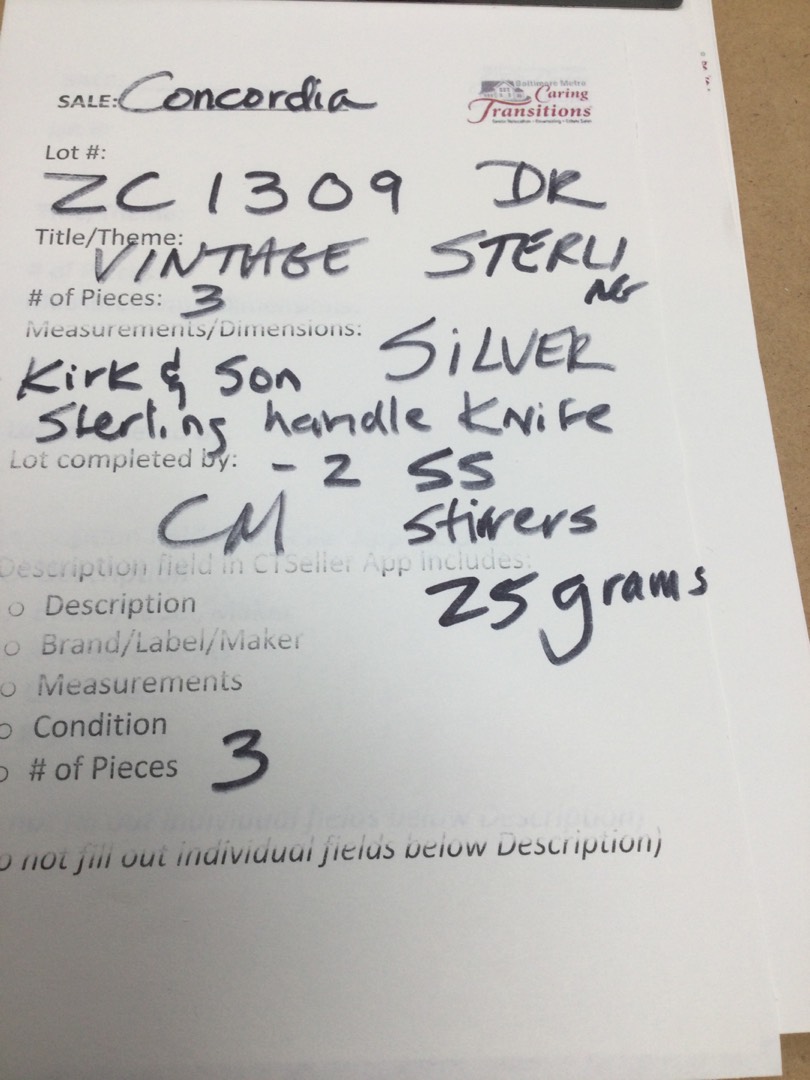 SALE: Concordia
Baltimore Metro
Caring
Transitions
Lot #:
ZC1309 DR
Title/Theme:
VINTAGE STERLING
# of Pieces: 3
Measurements/Dimensions:
SiLVER
Kirk & Son
Sterling handle Knife
Lot completed by: - 2 SS
CM stirrers
Description field in CTSeller App includes:
25 grams
○ Description
○ Brand/Label/Maker
○ Measurements
○ Condition
○ # of Pieces 3
o not fill out individual fields below Description)